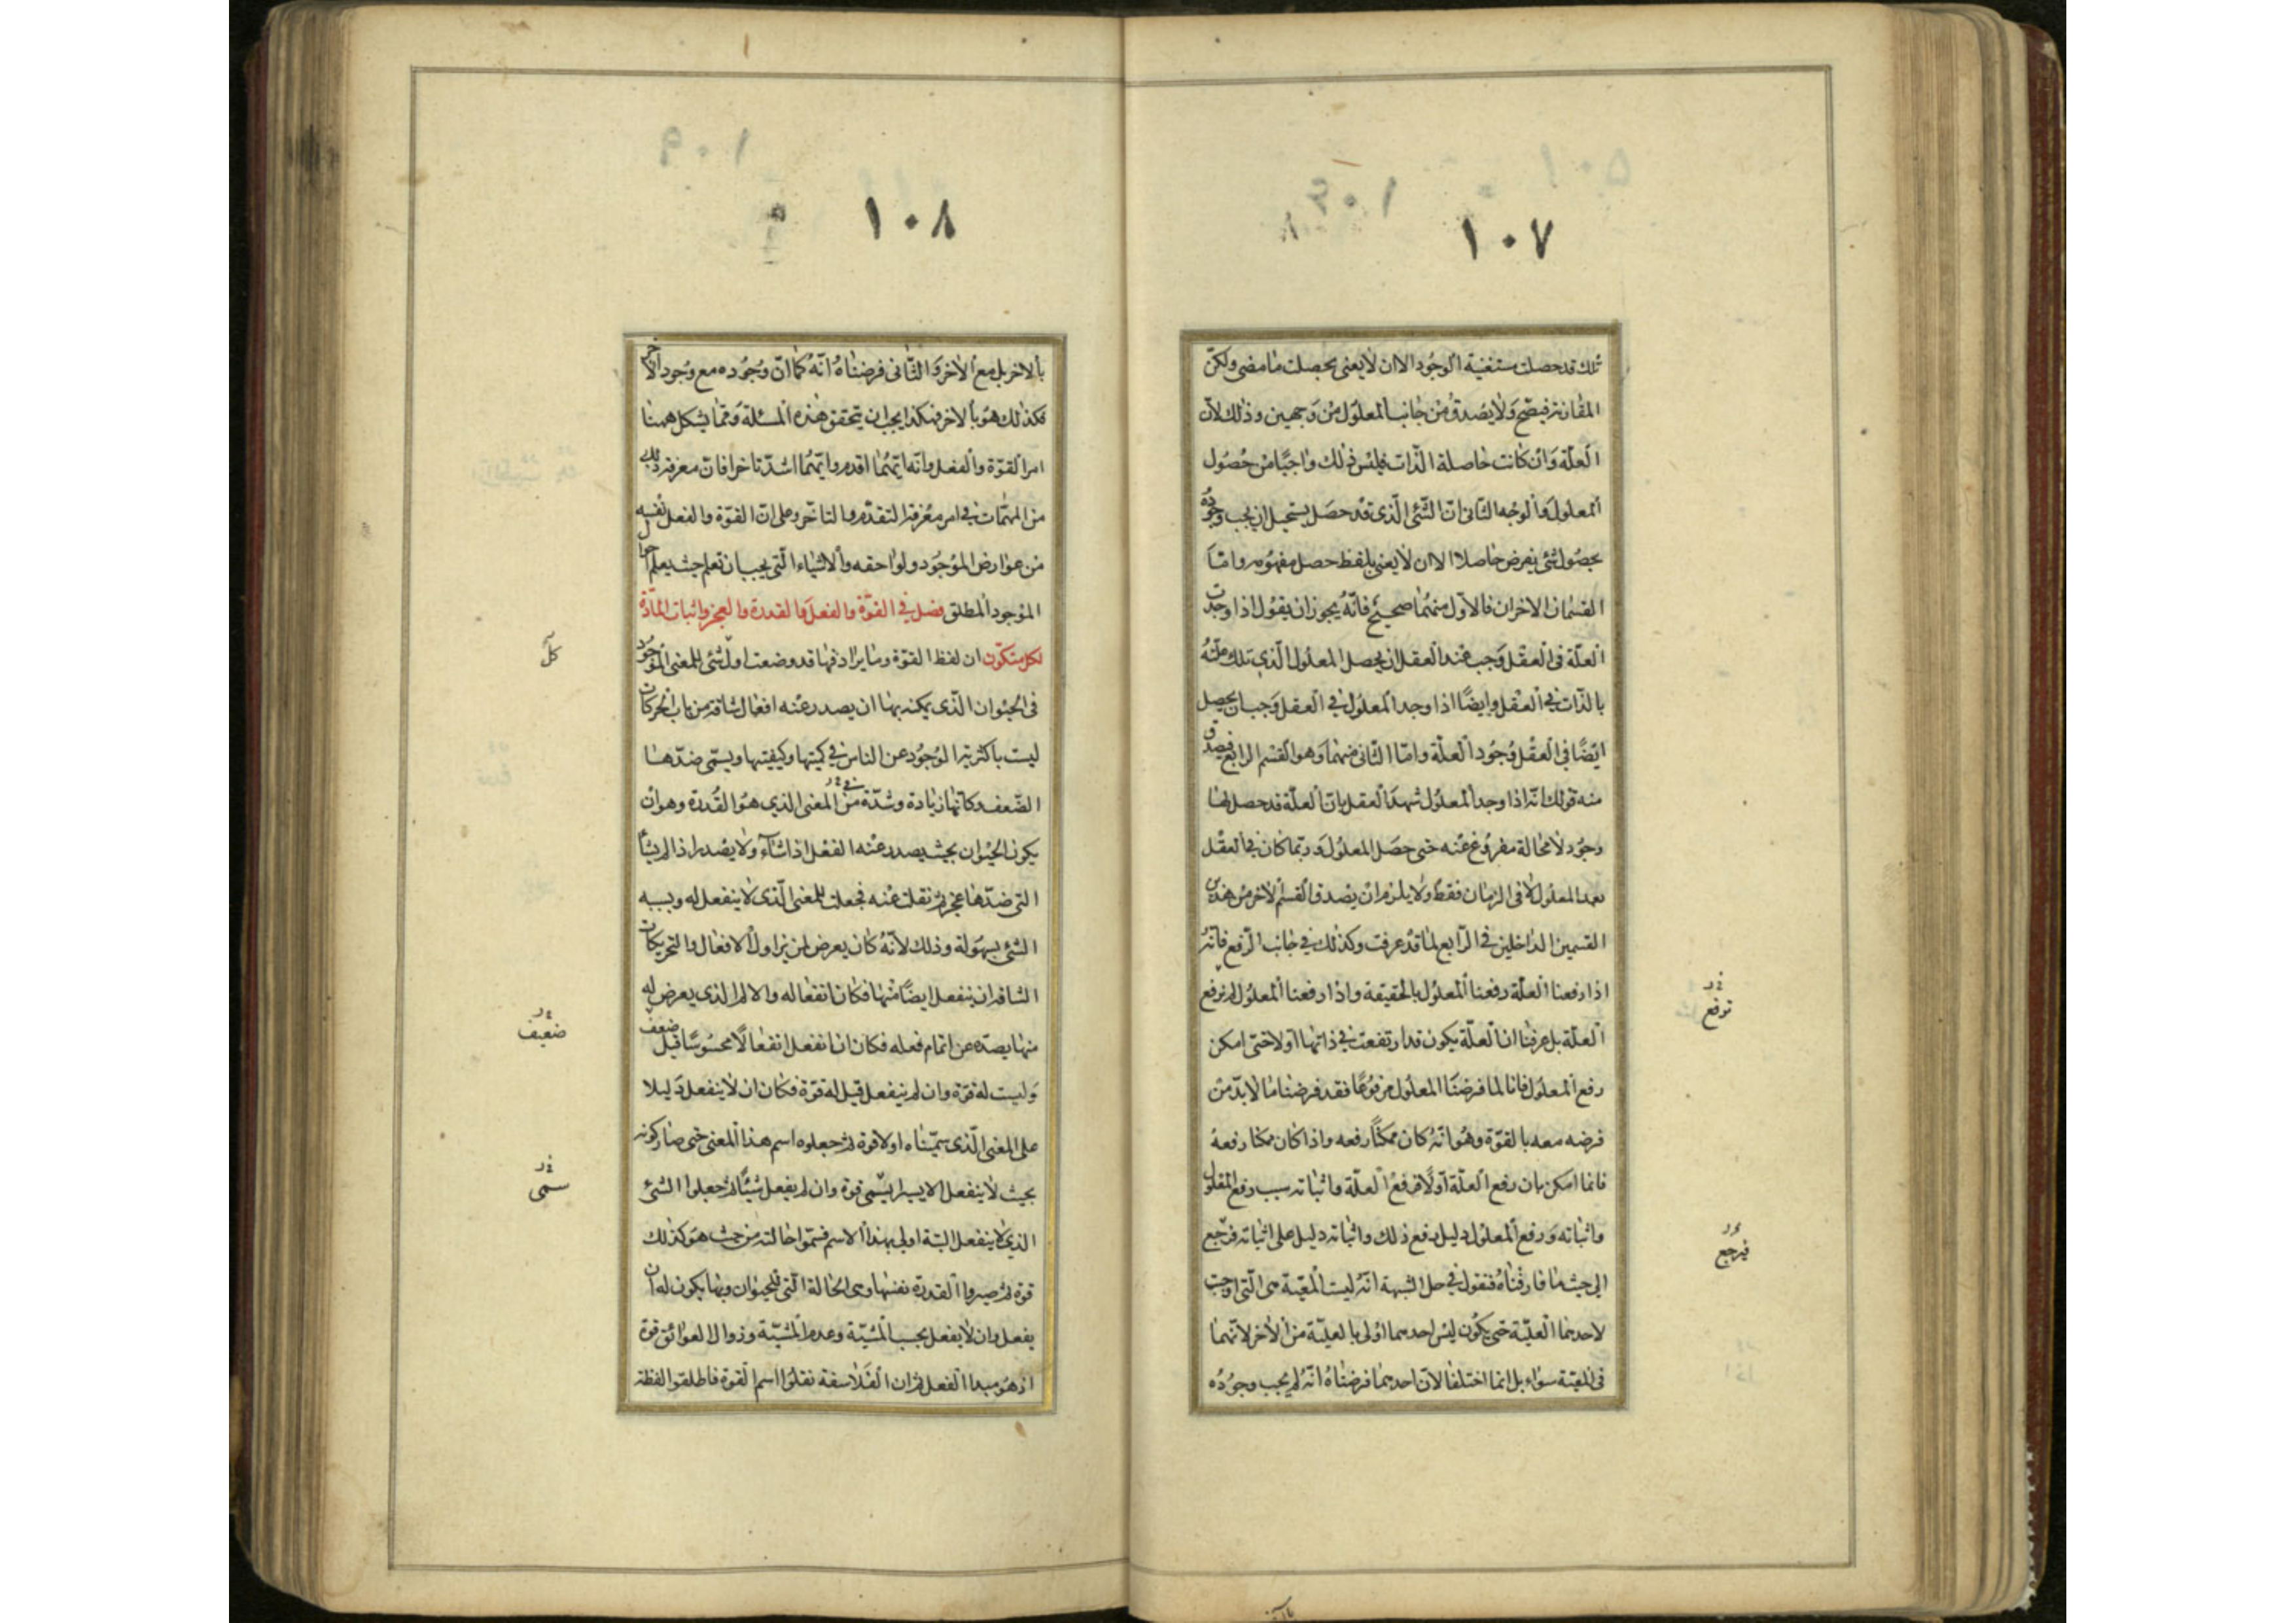 ١٠٧
تلك قد حصلت ستغنية الوجود الا ان لا يعنى بحصلت ما مضى ولكن
المقارنة فيصح ولا يصدق من جانب المعلول من وجهين وذلك لان
العلة وان كانت حاصلة الذات فليس ذلك واجبا من حصول
المعلول والوجه الثانى ان الشئ الذى قد حصل يستحيل ان يجب وجوده
بحصول شئ يفرض حاصلا الا ان لا يعنى بلفظ حصل مفهومه واما
القسمان الاخران فالاول منهما صحيح فانه يجوز ان يقول اذا وجدت
العلة فى العقل وجب عند العقل ان يحصل المعلول الذى تلك علته
بالذات فى العقل وايضا اذا وجد المعلول فى العقل وجب ان يحصل
ايضا فى العقل وجود العلة واما الثانى منهما وهو القسم الرابع فيصدق
منه قولك انه اذا وجد المعلول شهد العقل بان العلة قد حصل لها
وجود لا محالة مفروغ عنه حتى حصل المعلول وربما كان فى العقل
بعد المعلول لا فى الزمان فقط ولا يلزم ان يصدق القسم الاخر من هذين
القسمين الداخلين فى الرابع لما قد عرفت وكذلك فى جانب الرفع فانه
اذا رفعنا العلة رفعنا المعلول بالحقيقة واذا رفعنا المعلول لم نرفع
العلة بل عرفنا ان العلة يكون قد ارتفعت فى ذاتها اولا حتى امكن
رفع المعلول فانا لما فرضنا المعلول مرفوعا فقد فرضنا ما لا بد من
فرضه معه بالقوة وهو انه كان ممكنا رفعه واذا كان ممكنا رفعه
فانما امكن بان رفع العلة اولا فرفع العلة واثباته سبب رفع المعلول
واثباته ورفع المعلول دليل رفع ذلك واثباته دليل على اثباته فنرجع
الى حيث ما فارقناه فنقول فى حل الشبهة انه ليست المعية هى التى اوجبت
لاحدهما العلية حتى يكون ليس احدهما اولى بالعلية من الاخر لانهما
فى المعية سواء بل انما اختلفا لان احدهما فرضناه انه لم يجب وجوده
ترفع
فيرجع
١٠٨
بالاخر بل مع الاخر والثانى فرضناه انه كما ان وجوده مع وجود الاخر
فكذلك هو بالاخر فهكذا يجب ان يتحقق هذه المسئلة ومما يشكل ههنا
امر القوة والفعل وانه ايهما اقدم وايهما اشد تاخرا فان معرفة ذلك
من المهمات فى امر معرفة التقدم والتاخر وعلى ان القوة والفعل نفسه
من عوارض الموجود ولواحقه والاشياء التى يجب ان تعلم حيث يعلم احوال
الموجود المطلق فصل فى القوة والفعل والقدرة والعجز واثبات المادة
لكل متكون ان لفظ القوة وما يرادفها قد وضعت اول شئ للمعنى الموجود
فى الحيوان الذى يمكنه بها ان يصدر عنه افعال شاقة من باب الحركات
ليست باكثرية الوجود عن الناس فى كميتها وكيفيتها ويسمى ضدها
الضعف وكانها زيادة وشدة من المعنى الذى هو القدرة وهو ان
يكون الحيوان بحيث يصدر عنه الفعل اذا شاء ولا يصدر اذا لم يشأ
التى ضدها عجز ثم نقلت عنه فجعلت للمعنى الذى لا ينفعل له وبسببه
الشئ بسهولة وذلك لانه كان يعرض لمن يزاول الافعال والتحريكات
الشاقة ان ينفعل ايضا منها فكان انفعاله والالم الذى يعرض له
منها يصده عن اتمام فعله فكان ان انفعل انفعالا محسوسا قيل ضعف
وليست له قوة وان لم ينفعل قيل له قوة فكان ان لا ينفعل دليلا
على المعنى الذى سميناه اولا قوة ثم جعلوه اسم هذا المعنى حتى صار كونه
بحيث لا ينفعل الا يسيرا يسمى قوة وان لم يفعل شيئا ثم جعلوا الشئ
الذى لا ينفعل البتة اولى بهذا الاسم فسموا حالته من حيث هو كذلك
قوة ثم صيروا القدرة نفسها وهى الحالة التى للحيوان وبها يكون له ان
يفعل وان لا يفعل بحسب المشية وعدم المشية وزوال العوائق قوة
اذ هو مبدا الفعل ثم ان الفلاسفة نقلوا اسم القوة فاطلقوا لفظة
كل
ضعيف
سمى